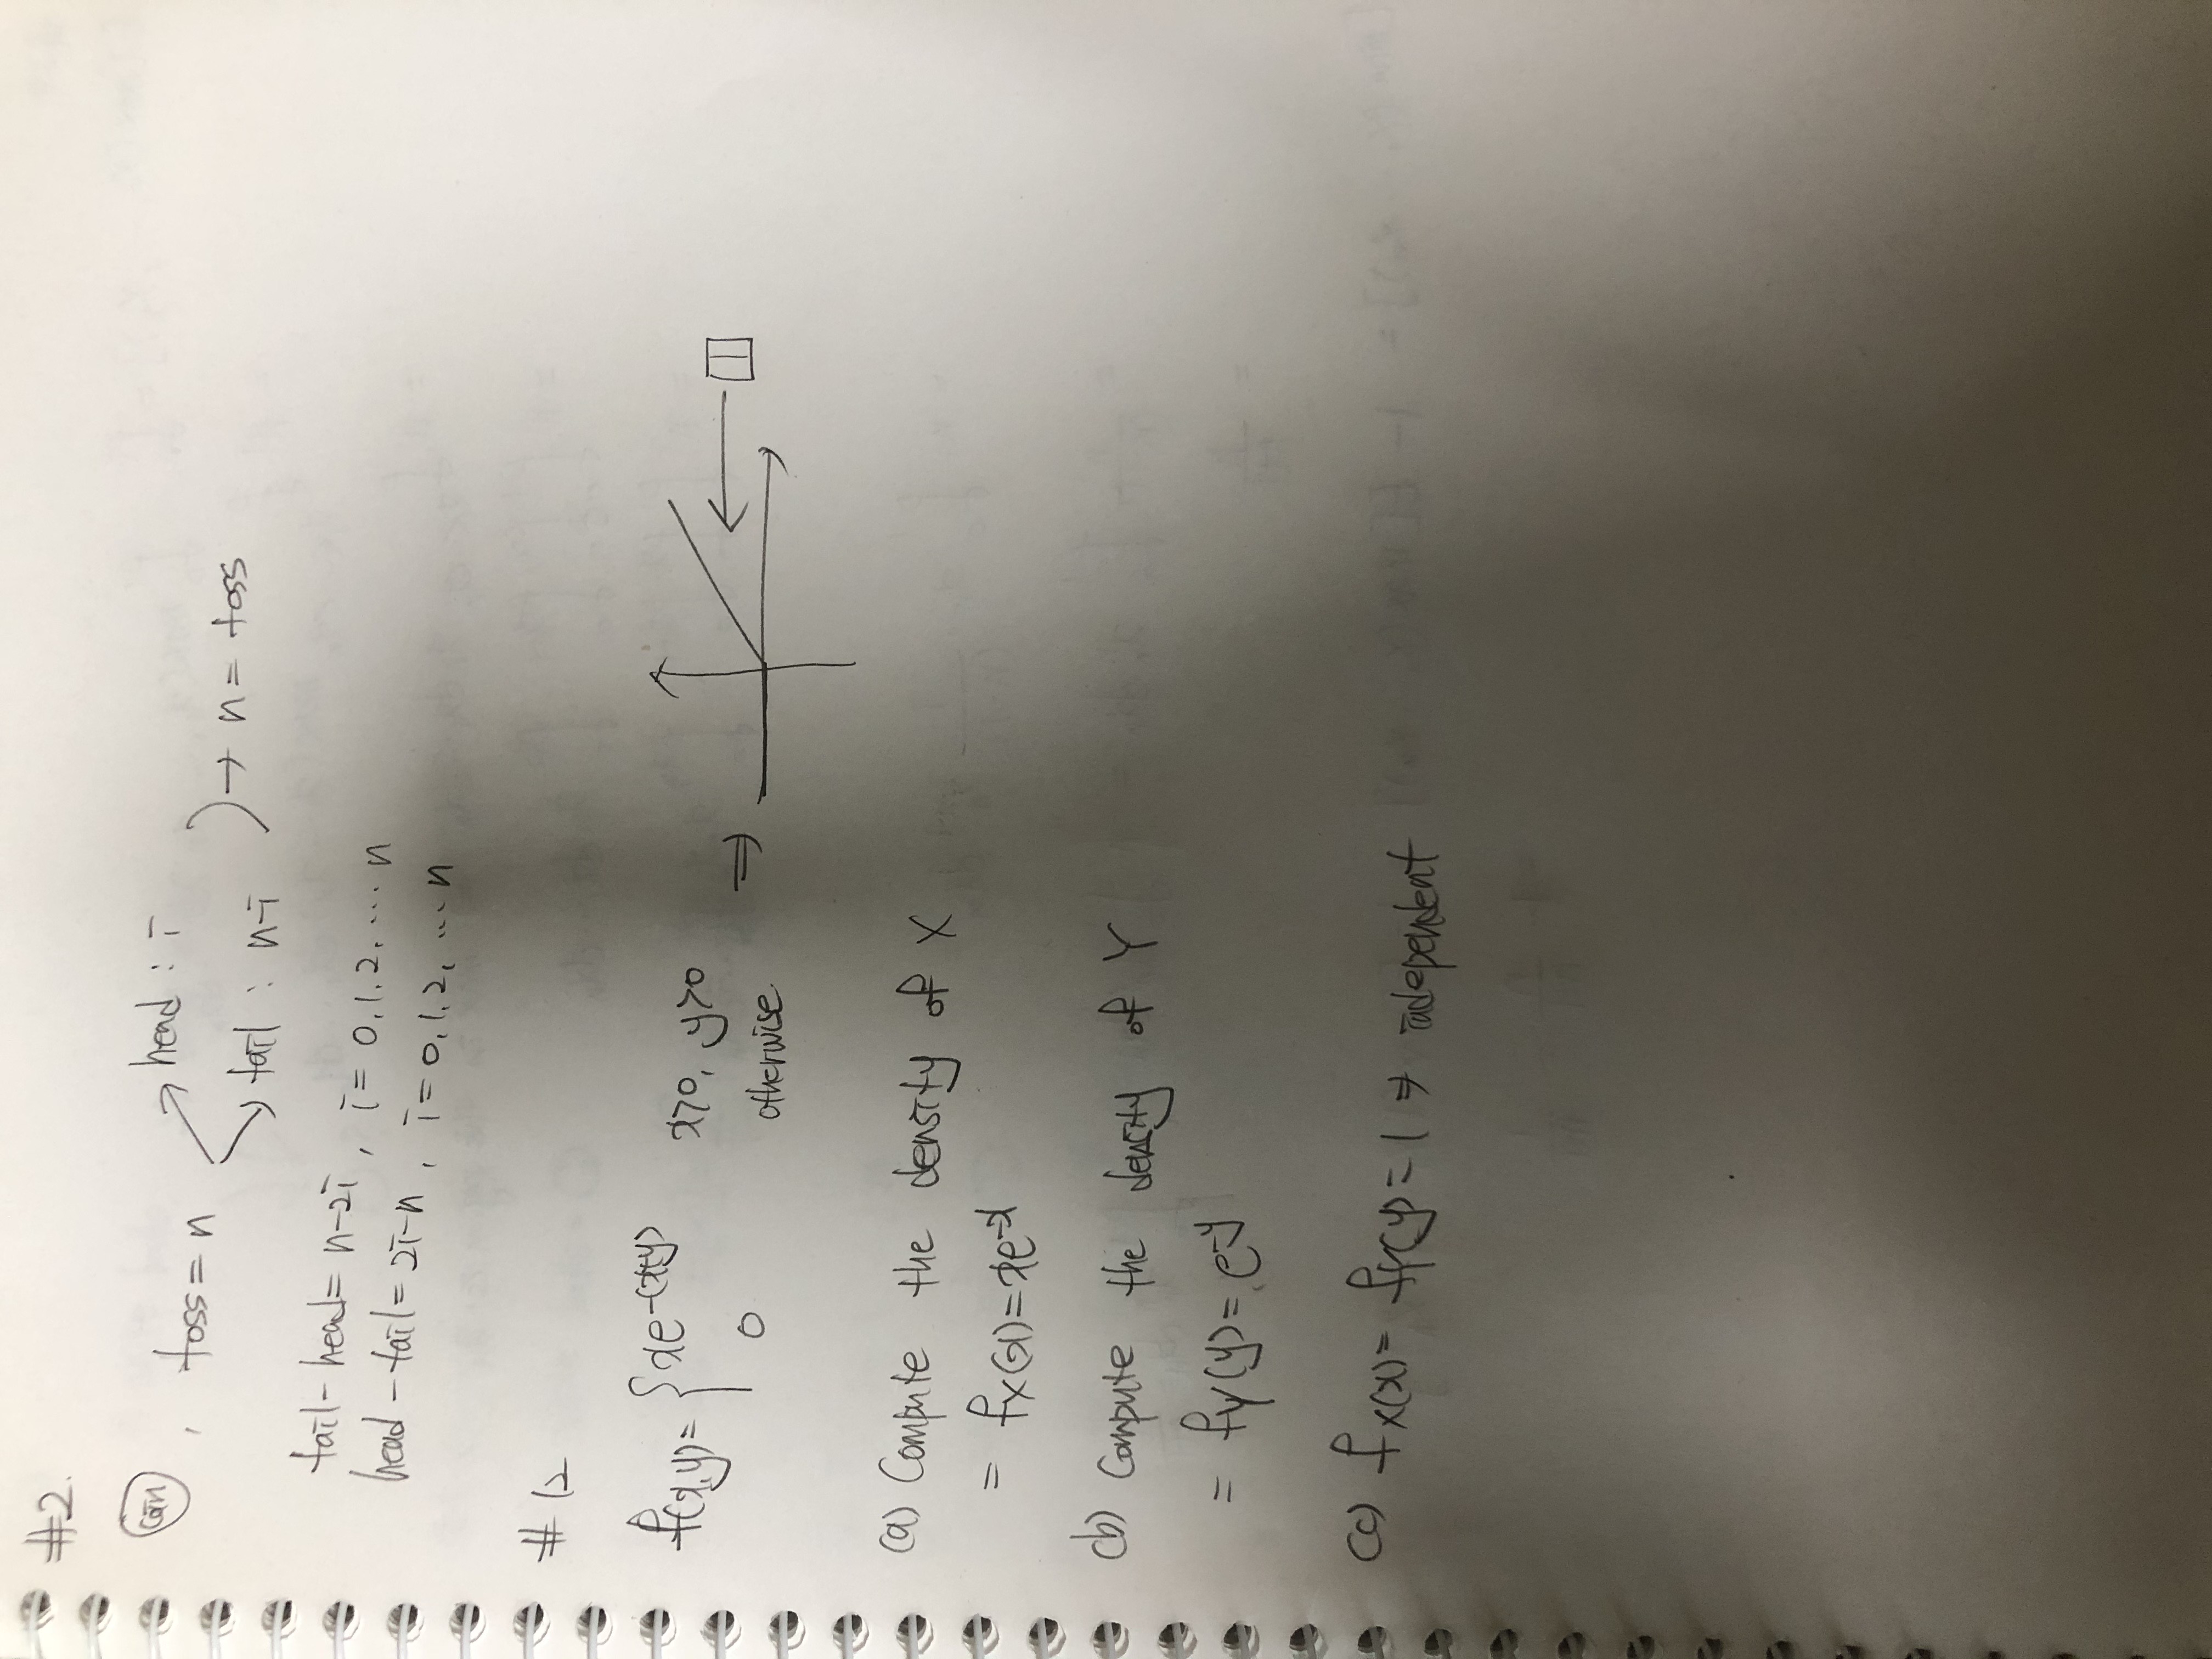 #2.
coin , toss = n ↗ head : i
↘ tail : n-i ) → n = toss
tail - head = n-2i , i = 0, 1, 2, ... n
head - tail = 2i-n , i = 0, 1, 2, ... n
#12
f(x,y) = { xe^-(x+y) x>0, y>0
0 otherwise ⇒
(a) Compute the density of X
= fX(x) = xe^-x
(b) Compute the density of Y
= fY(y) = e^-y
(c) fX(x) = fY(y) = 1 ⇒ independent